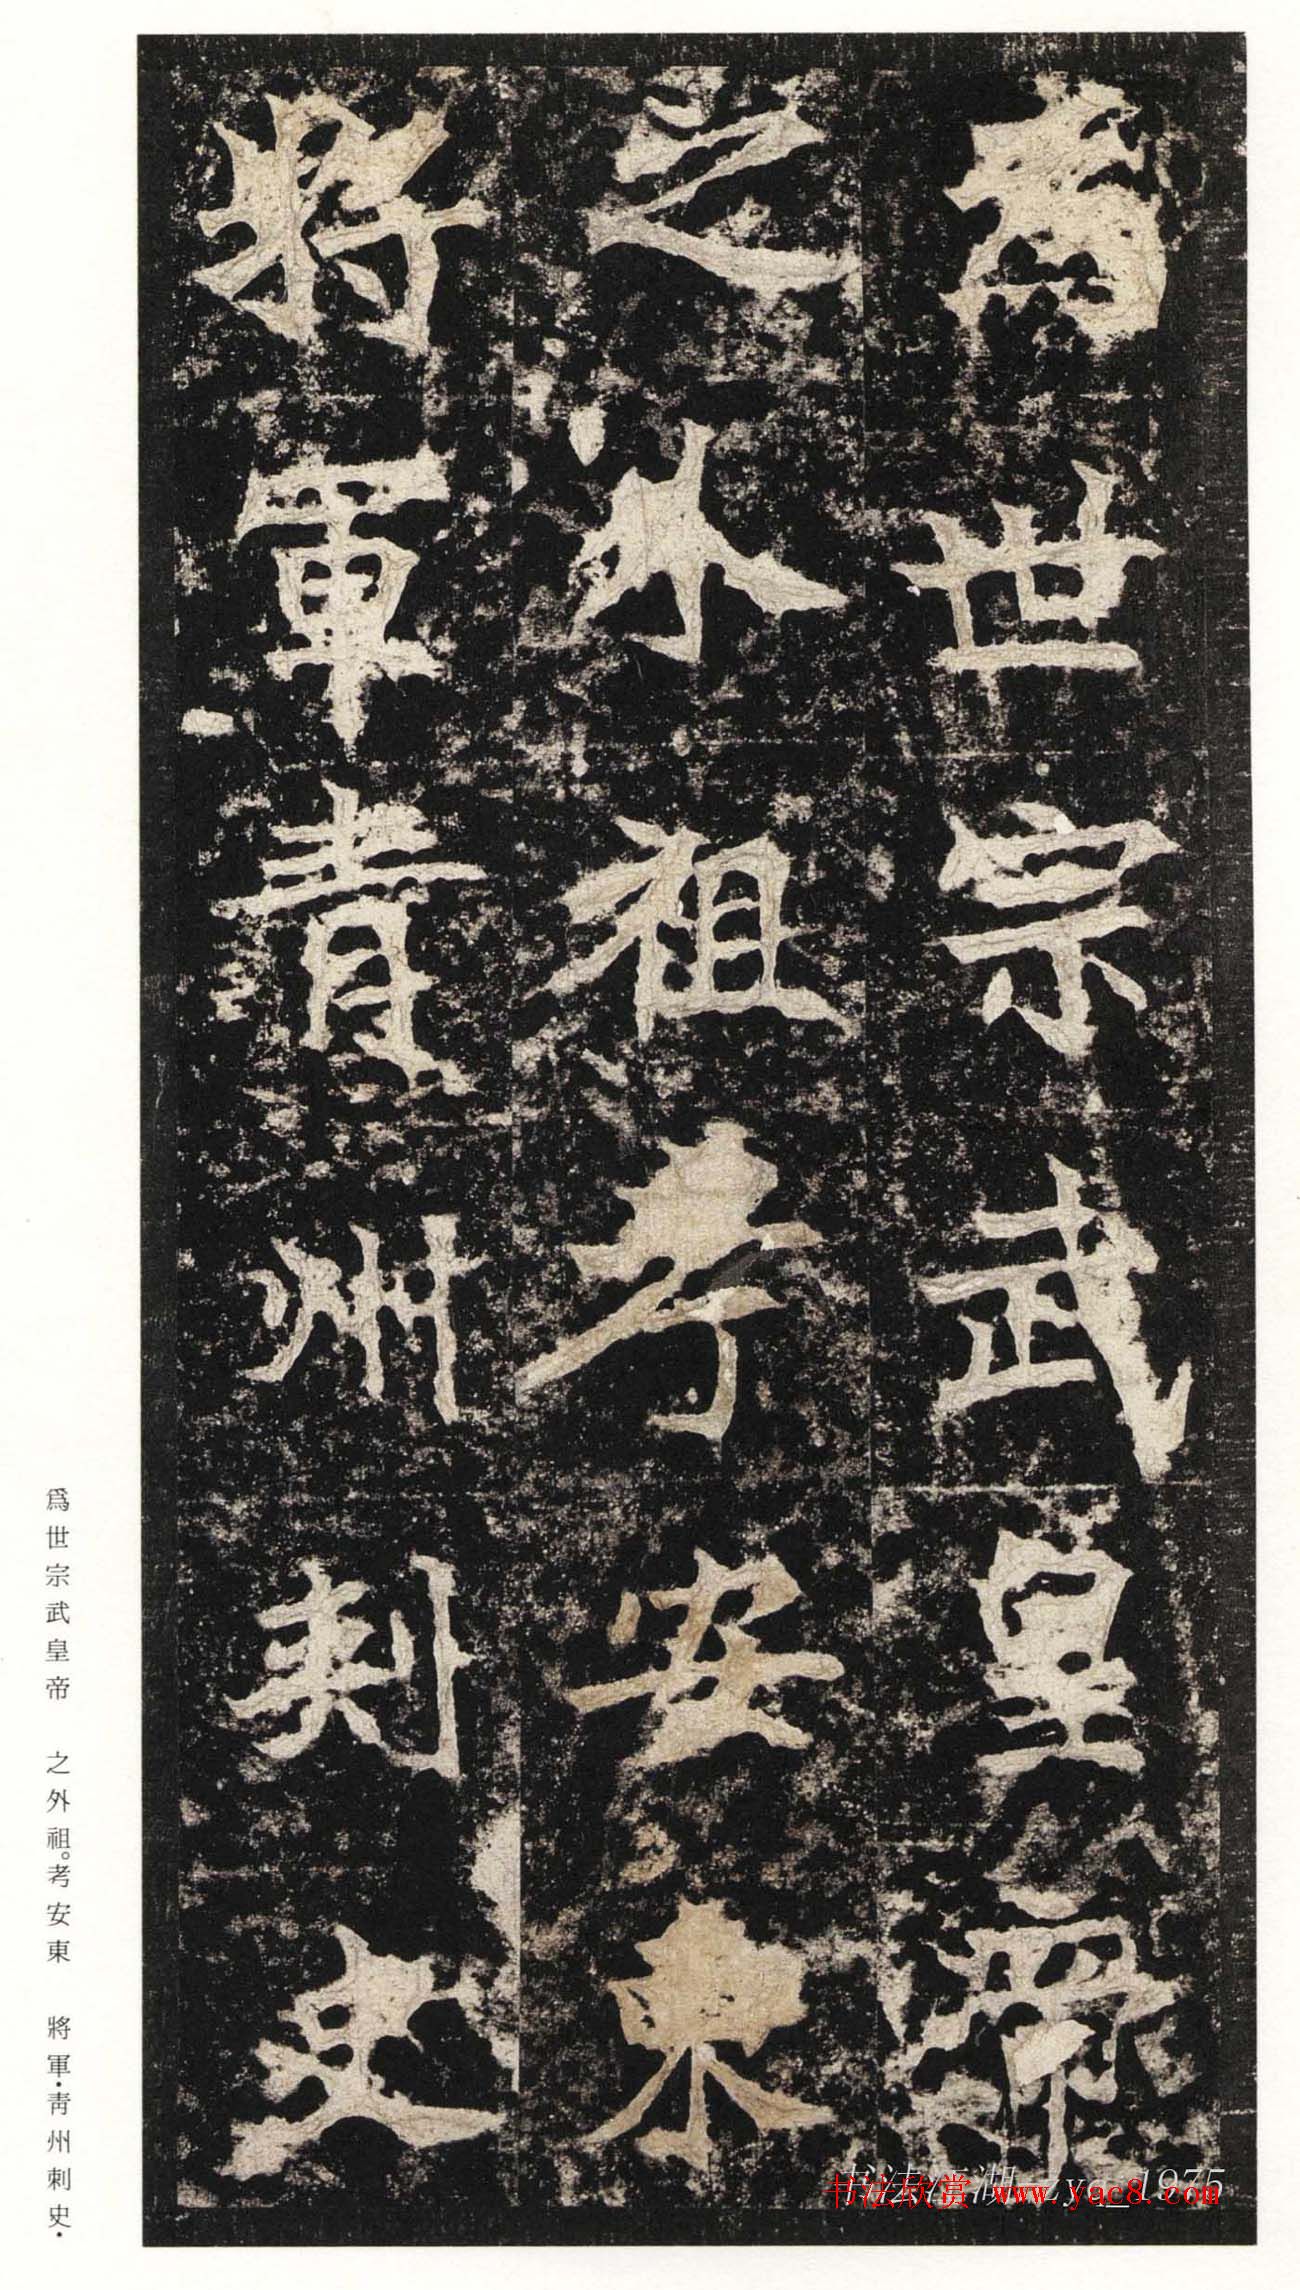 爲世宗武皇帝
之外祖考安東
將軍青州刺史
爲世宗武皇帝 之外祖。考安東 將軍·靑州刺史·
书法欣赏 www.yac8.com
zyq_1975